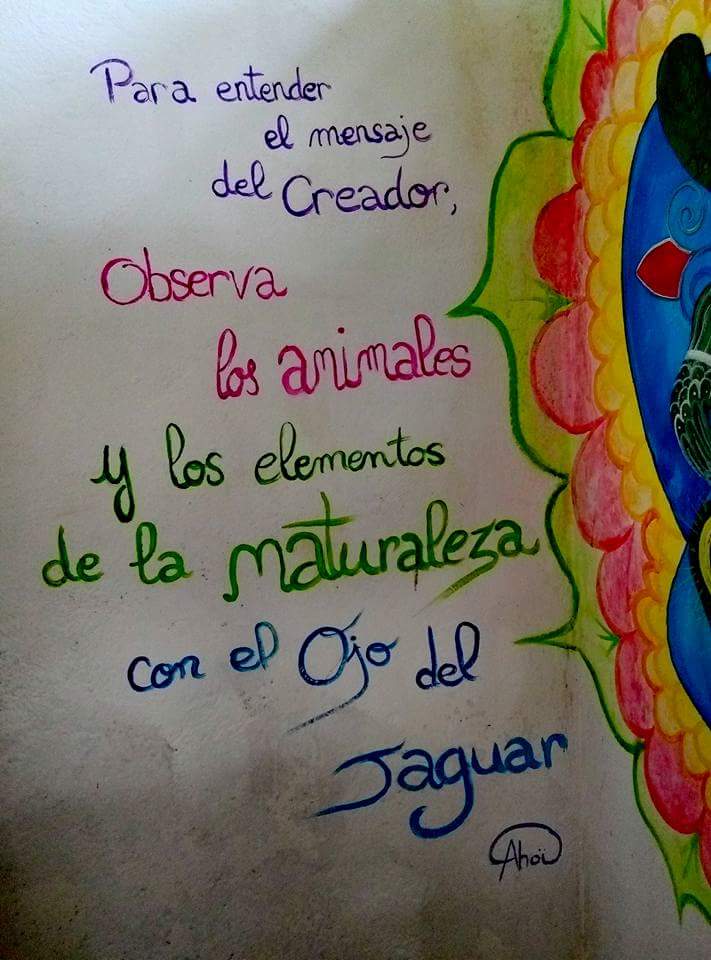 Para entender
el mensaje
del Creador,
Observa
los animales
y los elementos
de la naturaleza
con el Ojo del
Jaguar
Ahoï